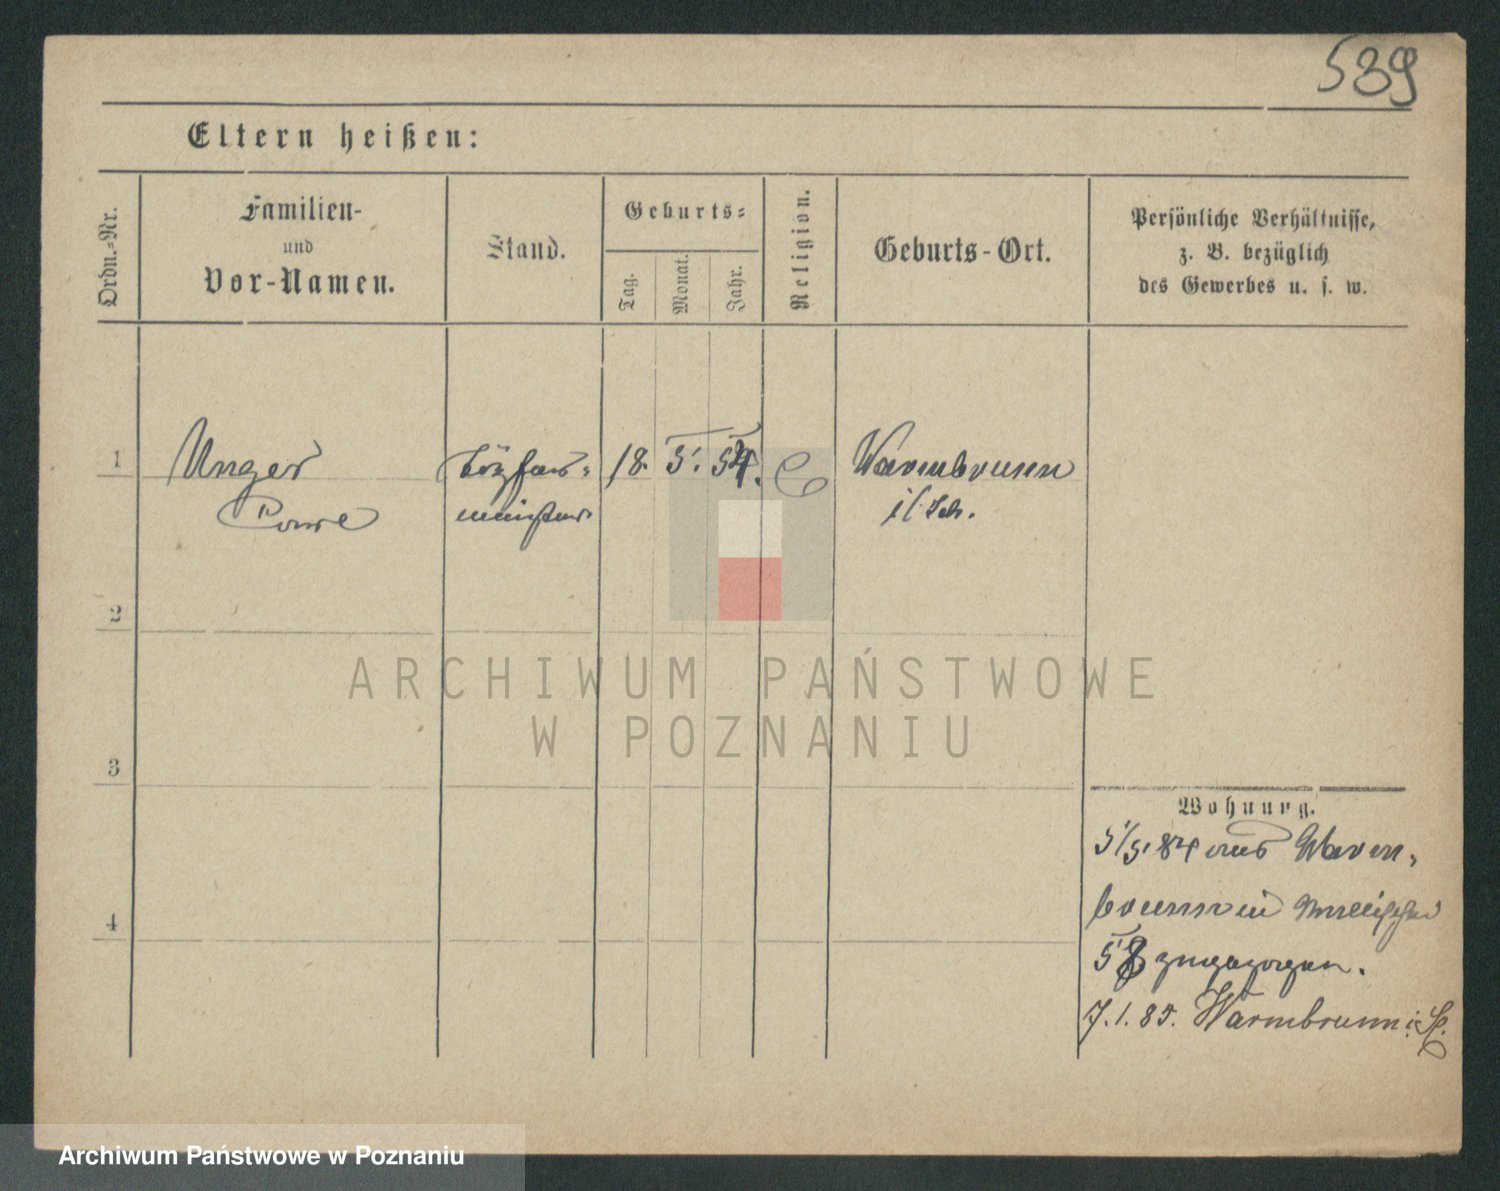 539
Eltern heißen:
Ordn.-Nr.
Familien-
und
Vor-Namen.
Stand.
Geburts-
Tag.
Monat.
Jahr.
Religion.
Geburts-Ort.
Persönliche Verhältnisse,
z. B. bezüglich
des Gewerbes u. s. w.
1
Unger
18. 5. 54.
Warmbrunn
i/Sch.
2
ARCHIWUM PAŃSTWOWE
W POZNANIU
3
Wohnung.
5/5. 84 aus Warm-
brunn in
58 zugezogen.
4
7. 1. 85. Warmbrunn
Archiwum Państwowe w Poznaniu